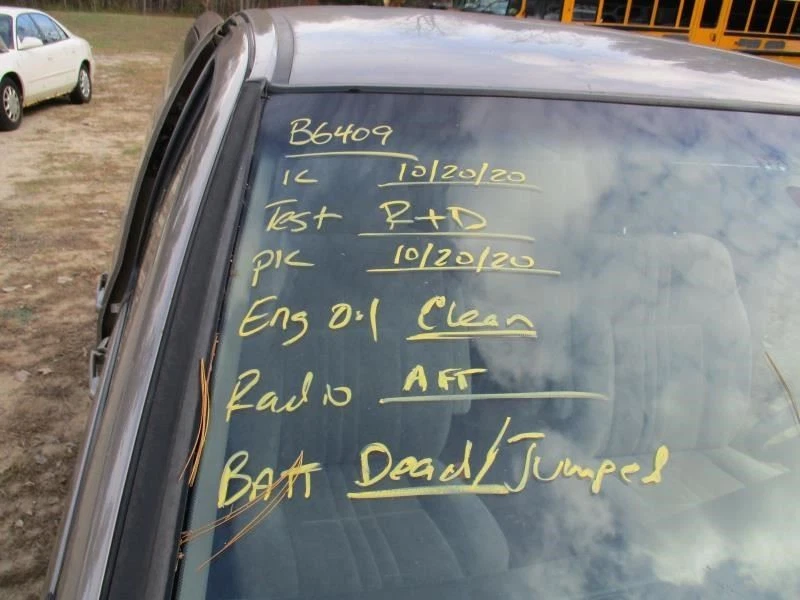 B6409
IC 10/20/20
Test R+D
PIC 10/20/20
Eng Oil Clean
Radio AFT
BAtt Dead/Jumped